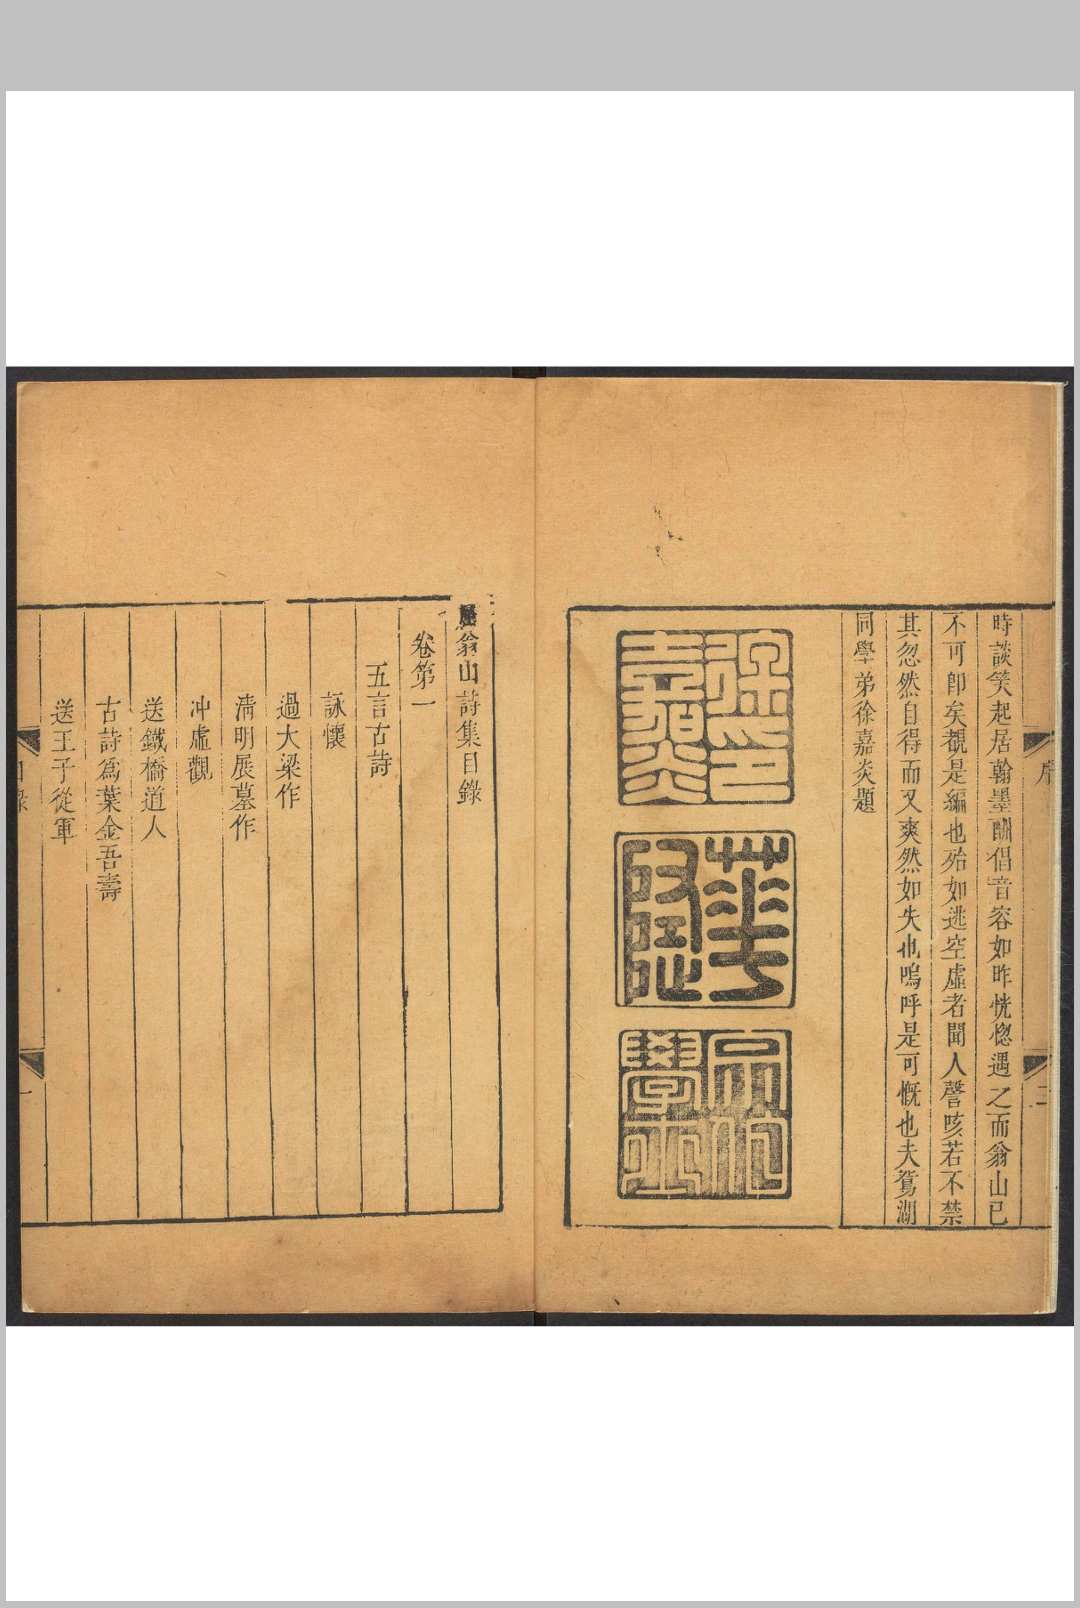 序
二
時談笑起居翰墨酬倡音容如昨恍惚遇之而翁山已
不可卽矣覩是編也殆如逃空虛者聞人謦咳若不禁
其忽然自得而又爽然如失也嗚呼是可慨也夫鴛湖
同學弟徐嘉炎題
徐嘉炎印
華隱
翁山詩集目錄
卷第一
五言古詩
詠懷
過大梁作
淸明展墓作
冲虛觀
送鐵橋道人
古詩爲葉金吾壽
送王子從軍
目錄
一